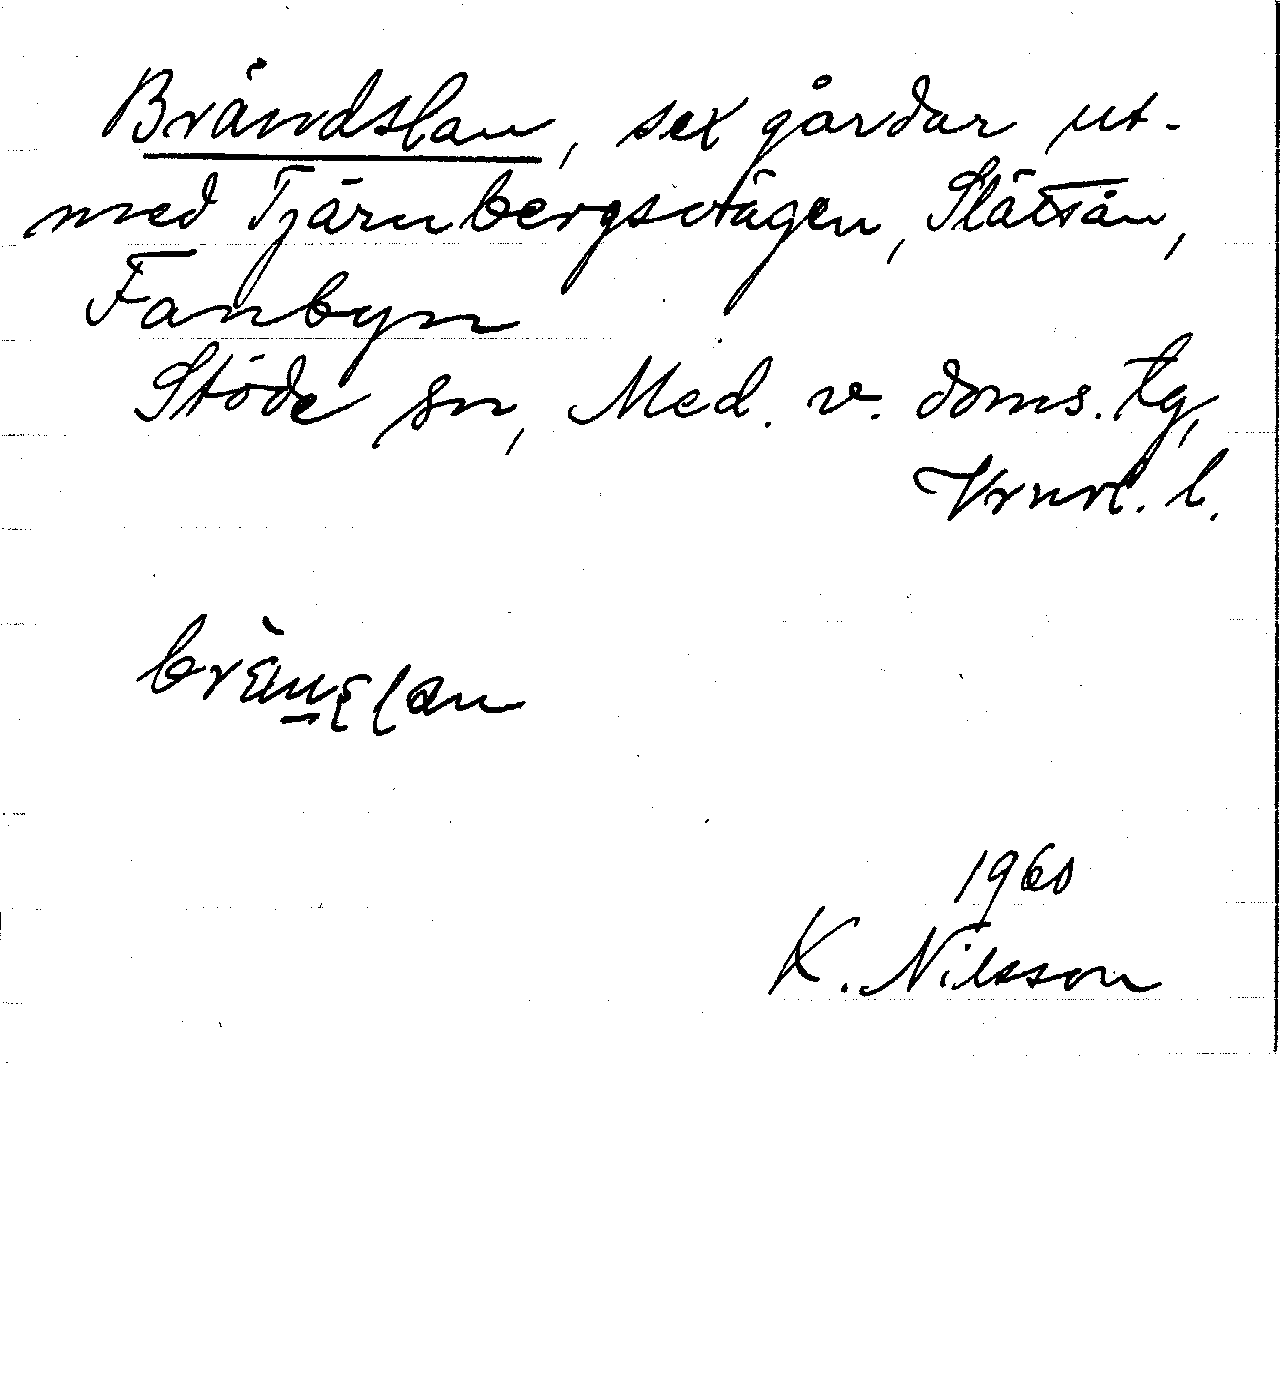 Brändslan, sex gårdar ut-
med Tjärnbergsvägen, Slättån,
Fanbyn
Stöde sn, Med. v. doms. tg,
Vrnrl. l.
brä̀nslan
1960
K. Nilsson